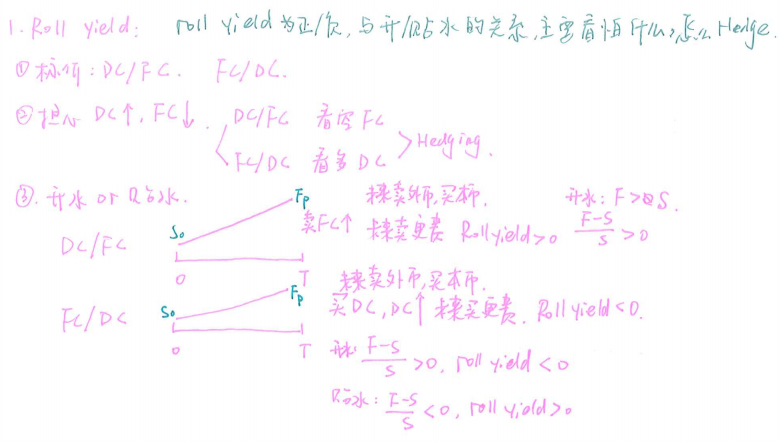 1. Roll yield: roll yield为正/负,与升/贴水的关系,主要看怕什么,怎么Hedge.
① 标价: DC/FC. FC/DC.
② 担心 DC↑, FC↓. DC/FC 看空 FC
FC/DC 看多 DC > Hedging.
③. 升水 or 贴水.
DC/FC S₀ Fp 0 T
未来卖外币,买本币.
卖FC↑ 未来卖更贵 Roll yield>0
升水: F>S.
F-S/S >0
FC/DC S₀ Fp 0 T
未来卖外币,买本币.
买DC, DC↑ 未来买更贵. Roll yield<0.
升水: F-S/S >0, roll yield<0
贴水: F-S/S <0, roll yield>0